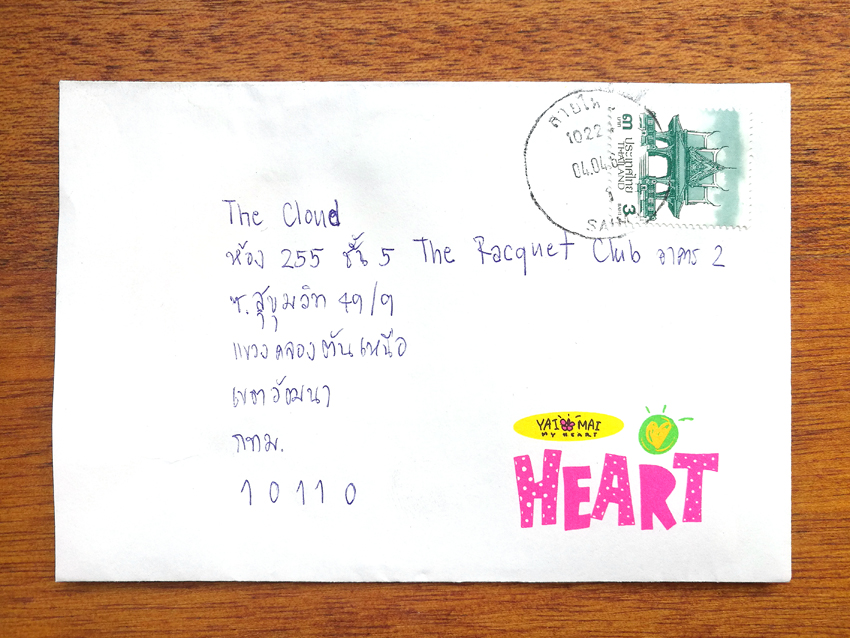 สายไห
1022
04.04.6
SAI
๓ บาท
ประเทศไทย
THAILAND
3
The Cloud
ห้อง 255 ชั้น 5 The Racquet Club อาคาร 2
ซ.สุขุมวิท 49/9
แขวงคลองตันเหนือ
เขตวัฒนา
กทม.
10110
YAI MAI
MY HEART
HEART